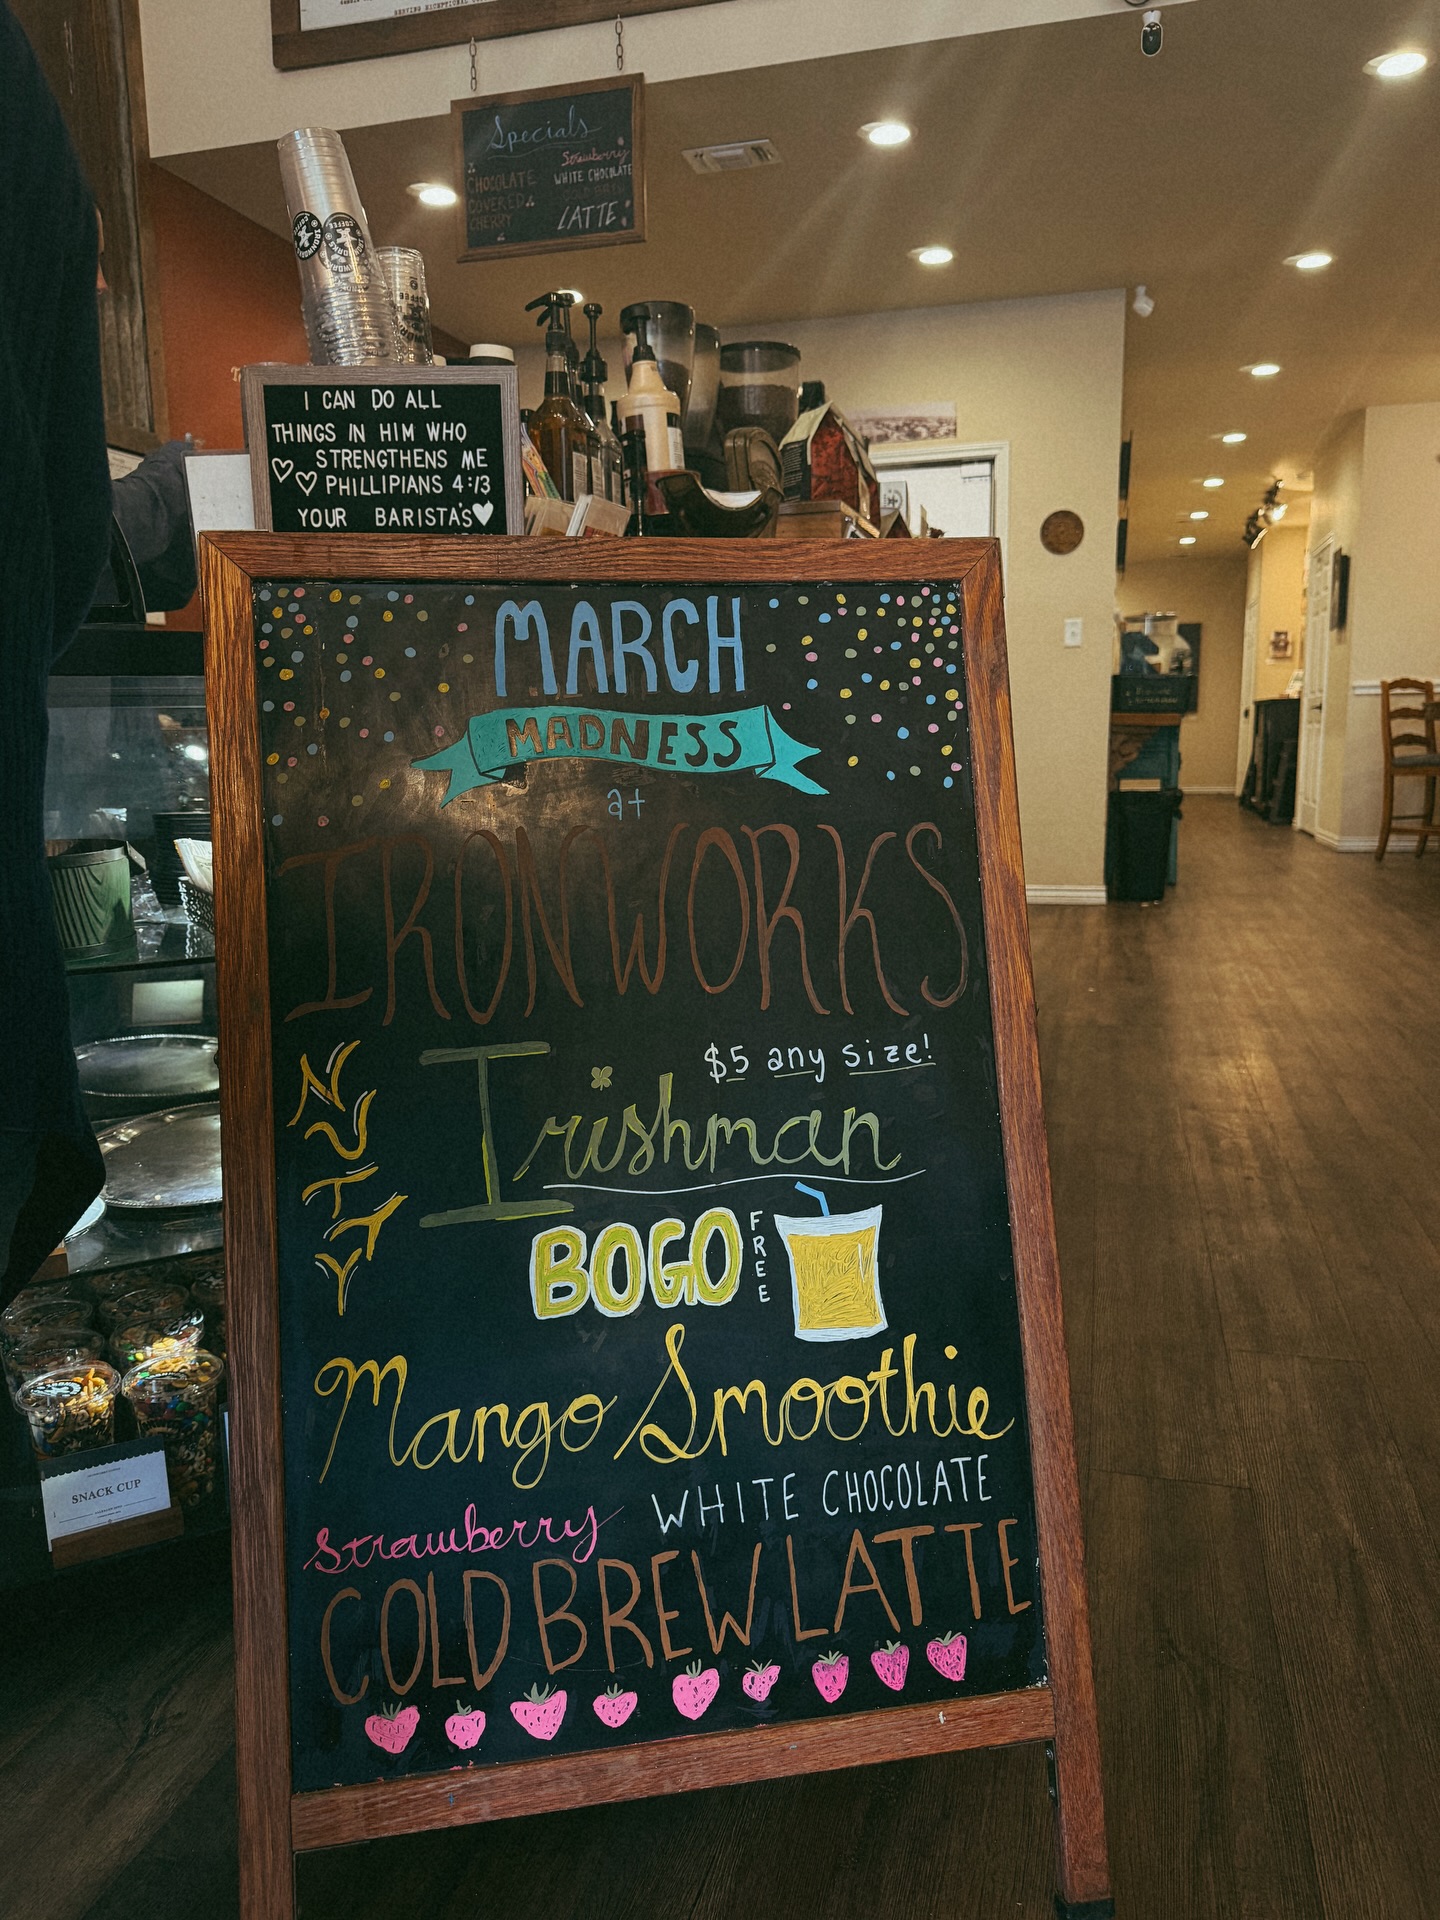 Specials
CHOCOLATE
COVERED
CHERRY
Strawberry
WHITE CHOCOLATE
COLD BREW
LATTE
IRONWORKS
COFFEE
I CAN DO ALL
THINGS IN HIM WHO
STRENGTHENS ME
PHILLIPIANS 4:13
YOUR BARISTA'S
MARCH
MADNESS
at
IRONWORKS
$5 any size!
NUTTY
Irishman
BOGO
FREE
Mango Smoothie
Strawberry WHITE CHOCOLATE
COLD BREW LATTE
SNACK CUP